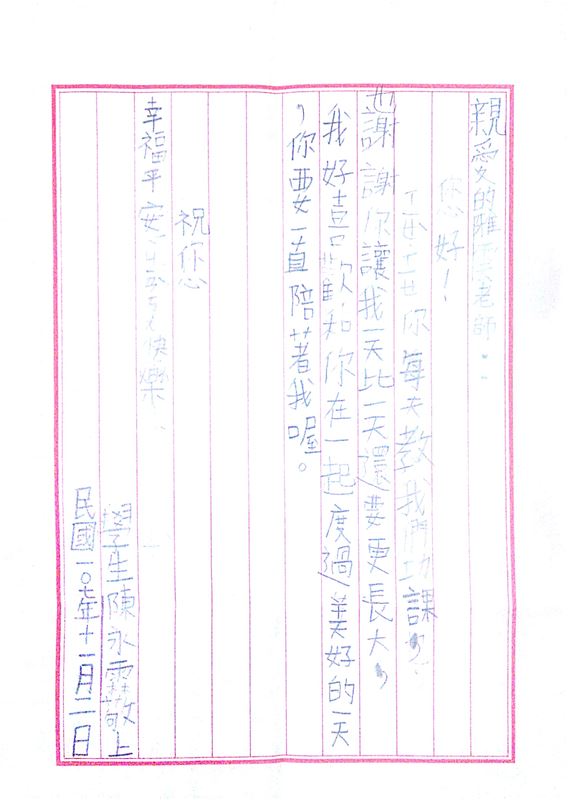 親愛的雅雲老師：
您好！
你每天教我們功課，
也謝謝你讓我一天比一天還要更長大，
我好喜歡和你在一起度過美好的一天
，你要一直陪著我喔。
祝您
幸福平安 快樂
學生陳永霖敬上
民國一〇七年十一月二日